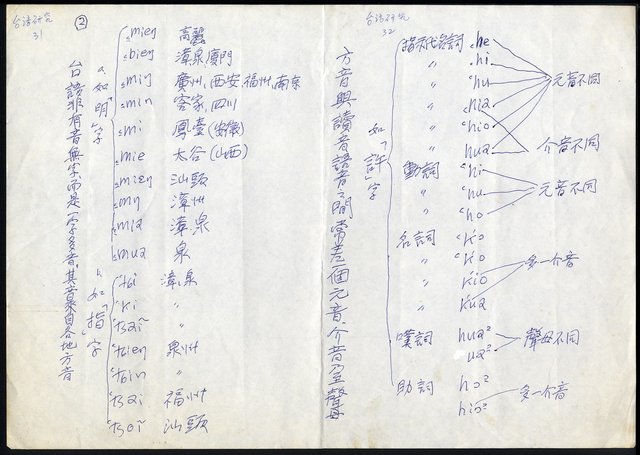 台語研究
31
②
台語非有音無字,而是一字多音,其音來自各地方音
a、如「明」字
ₛmieŋ 高麗
ₛbieŋ 漳泉廈門
ₛmiŋ 廣州,西安,福州,南京
ₛmin 客家,四川
ₛmi 鳳臺(安徽)
ₛmie 太谷(山西)
ₛmieŋ 汕頭
ₛmŋ 漳州
ₛmia 漳.泉
ₛmua 泉
b、如「指」字
ˈtsi 漳.泉
ˈki 〃
ˈtsaiⁿ 〃
ˈtsieŋ 泉州
ˈtsiŋ 〃
ˈtsai 福州
ˈtsoiⁿ 汕頭
台語研究
32
方音與讀音語音之間常差一個元音、介音乃至聲母
如「許」字
指示代名詞 ʿhe
〃 ʿhi
〃 ʿhu
〃 ʿhia
〃 ʿhio
〃 hua
元音不同
介音不同
動詞 ʿhi
〃 ʿhu
〃 ʿho
元音不同
名詞 ʿk'o
〃 ʿk'o
〃 k'io
〃 k'ua
多一介音
嘆詞 hua²
ua²
聲母不同
助詞 ho²
hio²
多一个音